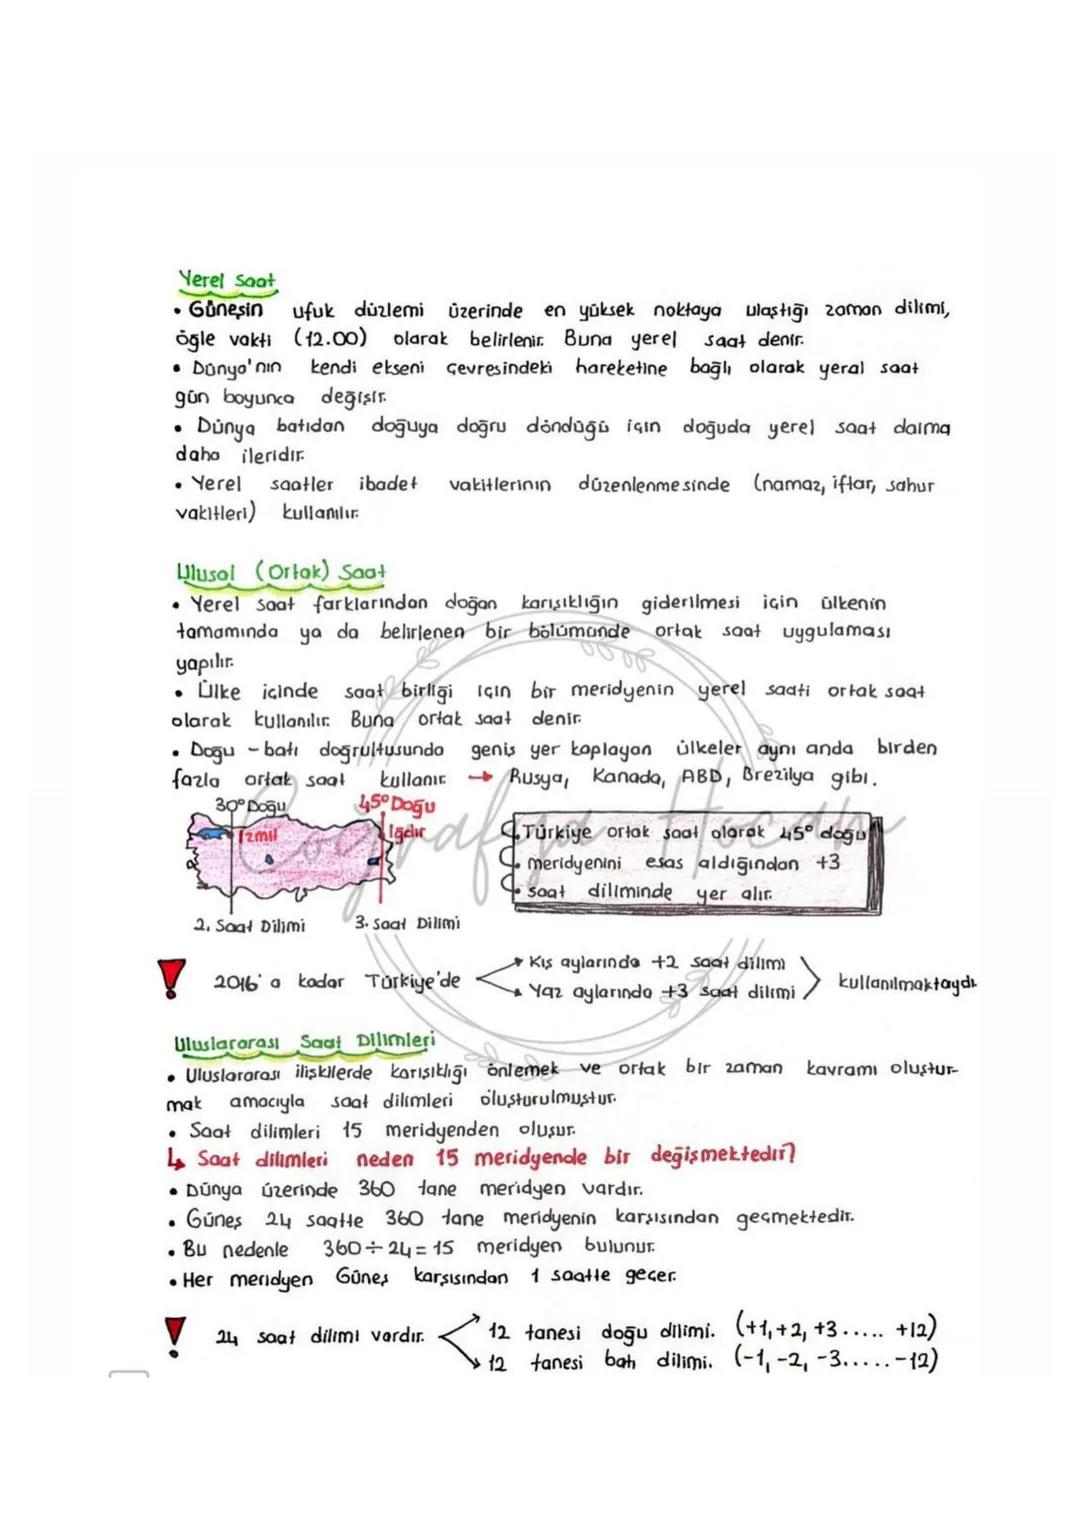 Yerel Saat
• Güneşin ufuk düzlemi üzerinde en yüksek noktaya ulaştığı zaman dilimi,
öğle vakti (12.00) olarak belirlenir. Buna yerel saat denir.
• Dünya'nın kendi ekseni çevresindeki hareketine bağlı olarak yeral saat
gün boyunca değişir.
• Dünya batıdan doğuya doğru döndüğü için doğuda yerel saat daima
daha ileridir.
• Yerel saatler ibadet vakitlerinin düzenlenmesinde (namaz, iftar, sahur
vakitleri) kullanılır.
Ulusal (Ortak) Saat
• Yerel saat farklarından doğan karışıklığın giderilmesi için ülkenin
tamamında ya da belirlenen bir bölümünde ortak saat uygulaması
yapılır.
• Ülke içinde saat birliği için bir meridyenin yerel saati ortak saat
olarak kullanılır. Buna ortak saat denir.
• Doğu - batı doğrultusunda geniş yer kaplayan ülkeler aynı anda birden
fazla ortak saat kullanır. → Rusya, Kanada, ABD, Brezilya gibi.
30° Doğu 45° Doğu
İzmit Iğdır
2. Saat Dilimi 3. Saat Dilimi
Türkiye ortak saat olarak 45° doğu
meridyenini esas aldığından +3
saat diliminde yer alır.
Coğrafya Hocam
! 2016'a kadar Türkiye'de
Kış aylarında +2 saat dilimi
Yaz aylarında +3 saat dilimi
kullanılmaktaydı.
Uluslararası Saat Dilimleri
• Uluslararası ilişkilerde karışıklığı önlemek ve ortak bir zaman kavramı oluştur-
mak amacıyla saat dilimleri oluşturulmuştur.
• Saat dilimleri 15 meridyenden oluşur.
↳ Saat dilimleri neden 15 meridyende bir değişmektedir?
• Dünya üzerinde 360 tane meridyen vardır.
• Güneş 24 saatte 360 tane meridyenin karşısından geçmektedir.
• Bu nedenle 360÷24=15 meridyen bulunur.
• Her meridyen Güneş karşısından 1 saatte geçer.
! 24 saat dilimi vardır.
12 tanesi doğu dilimi. (+1,+2,+3..... +12)
12 tanesi batı dilimi. (-1,-2,-3.....-12)